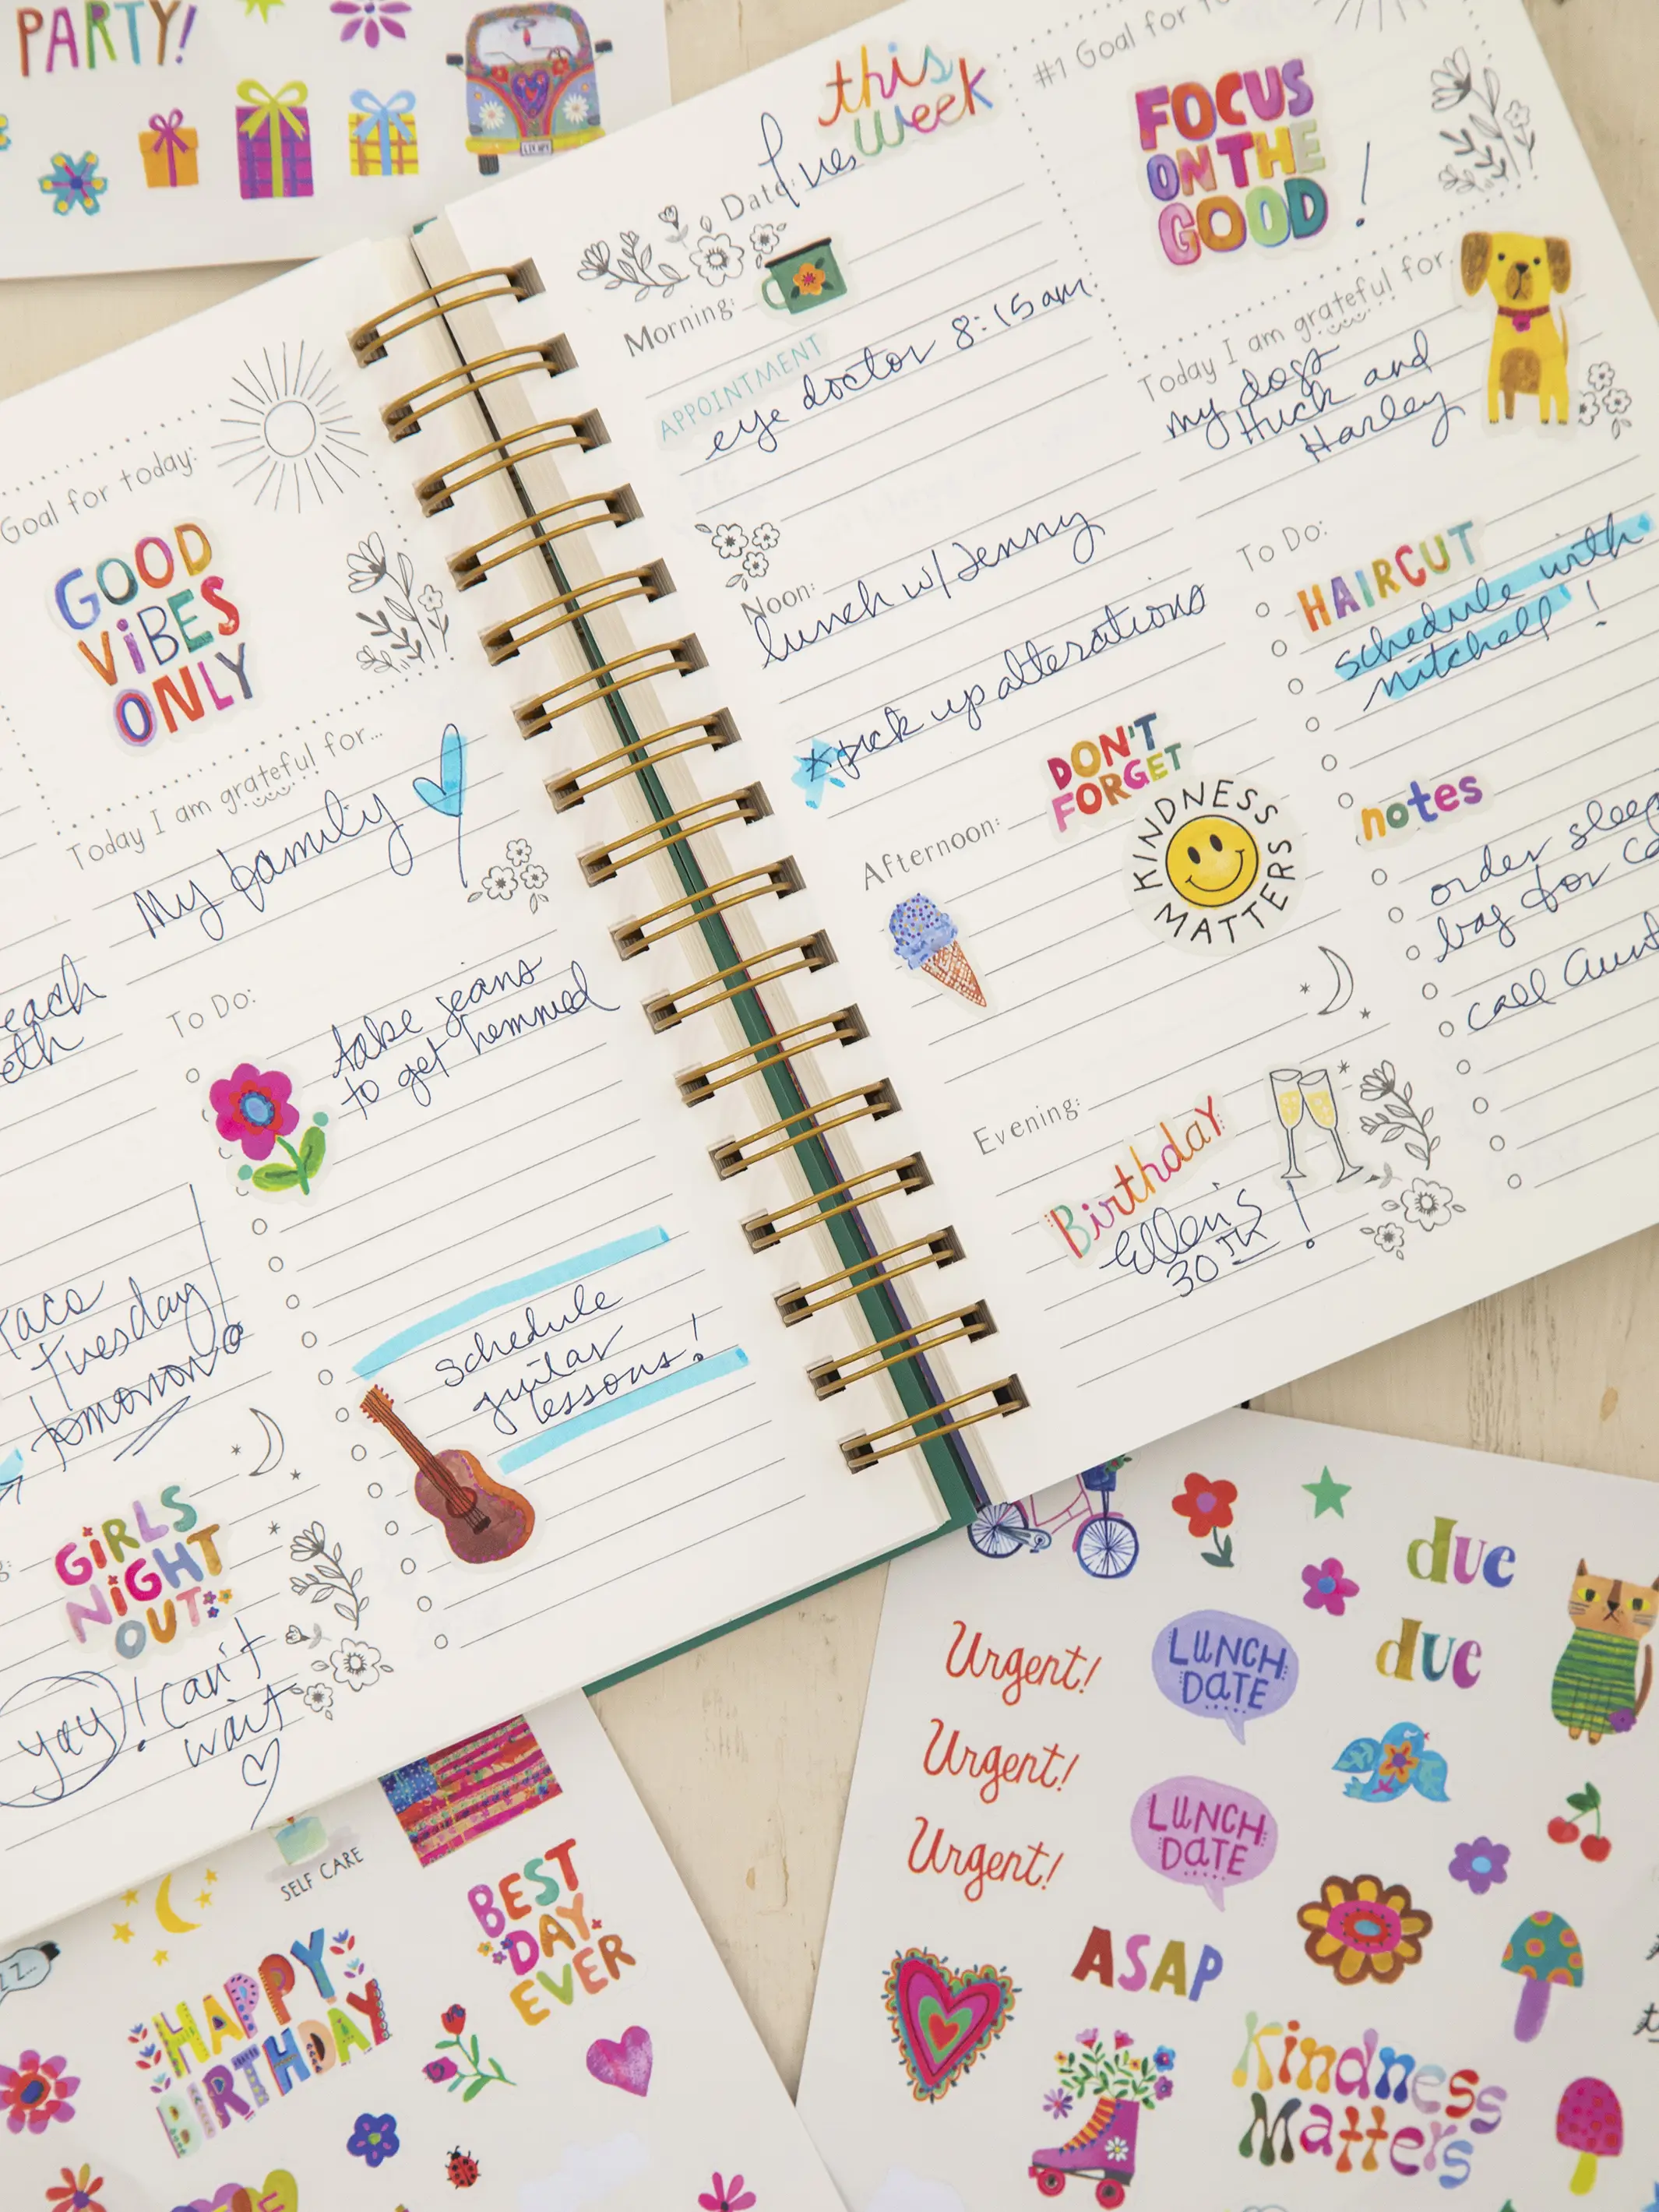 PARTY!
Goal for today:
GOOD
ViBES
ONLY
Today I am grateful for...
My family
each
eth
To Do:
take jeans
to get hemmed
Taco
Tuesday
tomorrow
schedule
guitar
lessons!
GiRLS
NiGHT
OUT
yay! Can't
wait
this
week
Date:
Tues
Morning:
APPOINTMENT
eye doctor 8:15 am
Noon:
lunch w/ Jenny
*pick up alterations
DON'T
FORGET
Afternoon:
KINDNESS
MATTERS
Evening:
Birthday
Ellen's
30TH !
#1 Goal for
FOCUS
ON THE
GOOD !
Today I am grateful for
my dogs
Huck and
Harley
To Do:
HAIRCUT
schedule with
mitchell !
notes
order sleep
bag for
call Aunt
SELF CARE
BEST
DAY
EVER
HAPPY
BIRTHDAY
due
due
Urgent!
LUNCH
DATE
Urgent!
LUNCH
DATE
Urgent!
ASAP
Kindness
Matters